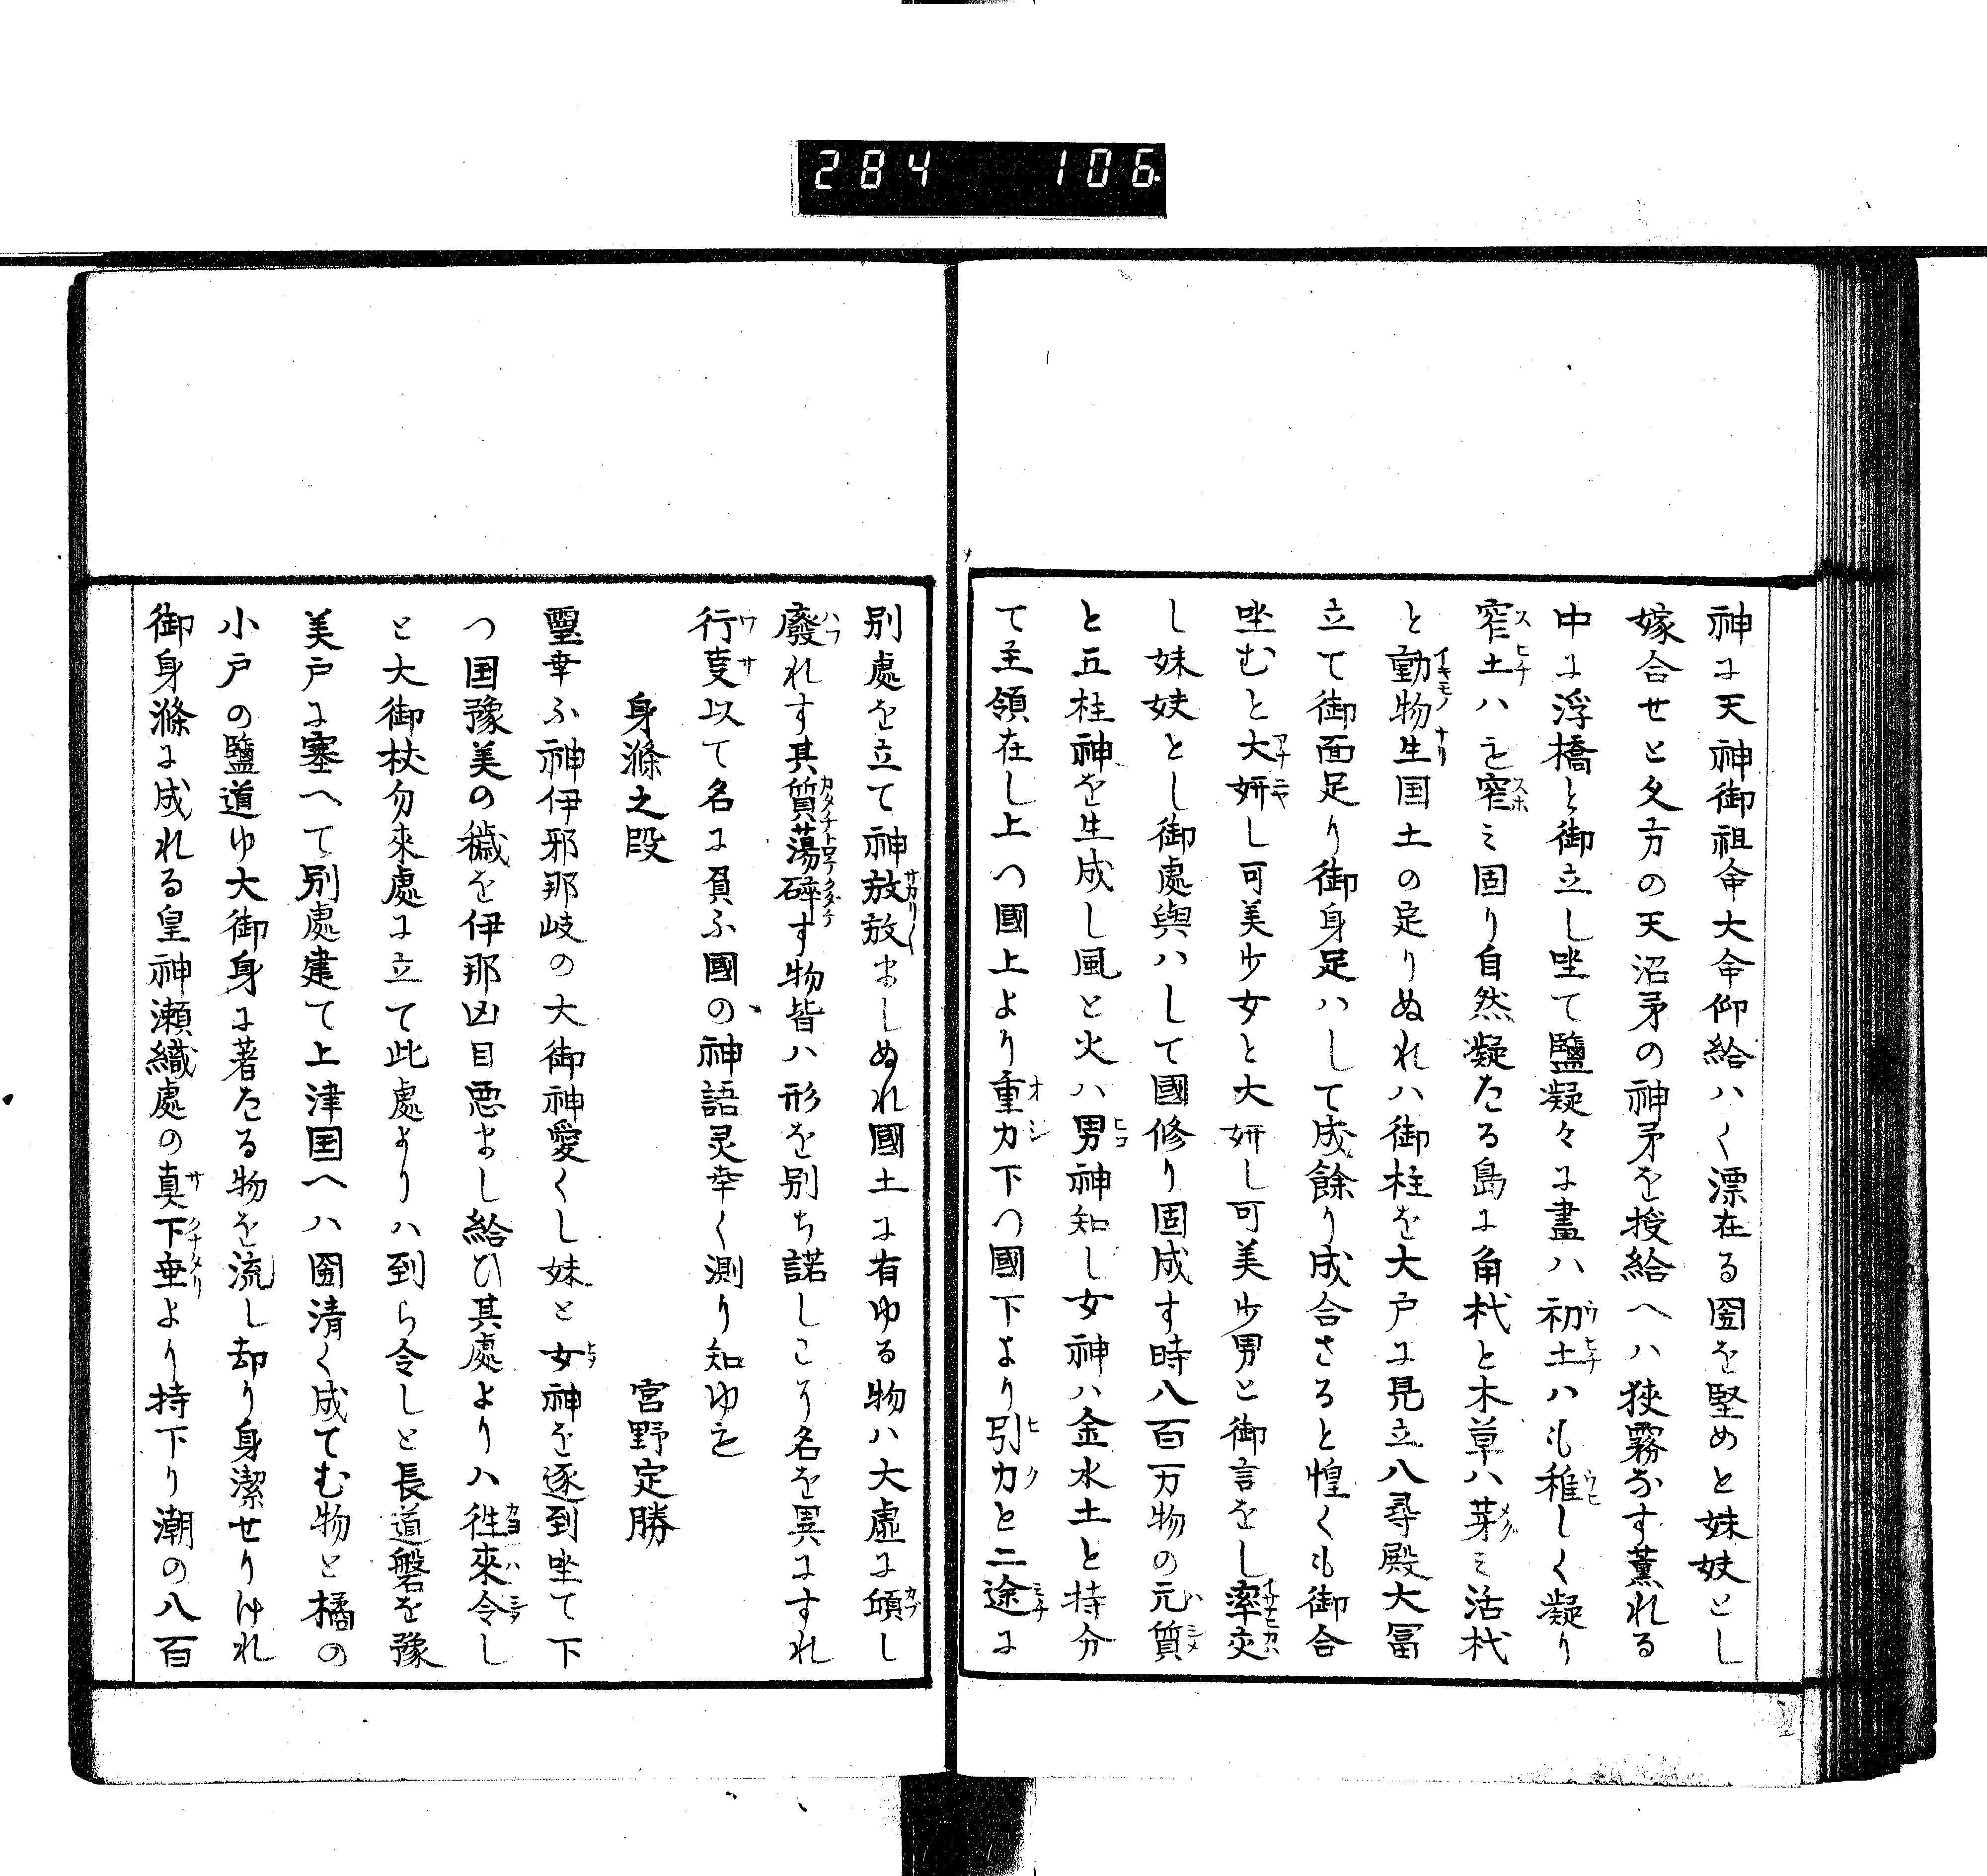 284 106
神に天神御祖命大命仰給ハく漂在る圀を堅めと妹妋とし
嫁合せと夂方の天沼矛の神矛を授給へハ狹霧なす薫れる
中に浮橋と御立し坐て鹽凝々に畫ハ初土ハも稚しく凝り
窄土ハも窄ミ固り自然凝たる島に角杙と木草ハ芽ミ活杙
と動物生国土の足りぬれハ御柱を大戸に見立八尋殿大冨
立て御面足り御身足ハして成餘り成合さると惶くも御合
坐むと大妍し可美少女と大妍し可美少男と御言をし率交
し妹妋とし御處與ハして國修り固成す時八百万物の元質
と五柱神を生成し風と火ハ男神知し女神ハ金水土と持分
て主領在し上つ國上より重力下つ國下より引力と二途に
別處を立て神放放ましぬれ國土に有ゆる物ハ大虛に傾し
廢れす其質蕩碎す物皆ハ形を別ち諾しこそ名を異にすれ
行㕝以て名に負ふ國の神語灵幸く測り知ゆも
身滌之段 宮野定勝
靈幸ふ神伊邪那岐の大御神愛くし妹と女神を逐到坐て下
つ国豫美の穢を伊那凶目悪まし給ひ其處よりハ徃來令し
と大御杖勿來處に立て此處よりハ到ら令しと長道磐を豫
美戸に塞へて別處建て上津国へハ圀清く成てむ物と橘の
小戸の鹽道ゆ大御身に著たる物を流し却り身潔せりけれ
御身滌に成れる皇神瀬織處の真下垂より持下り潮の八百